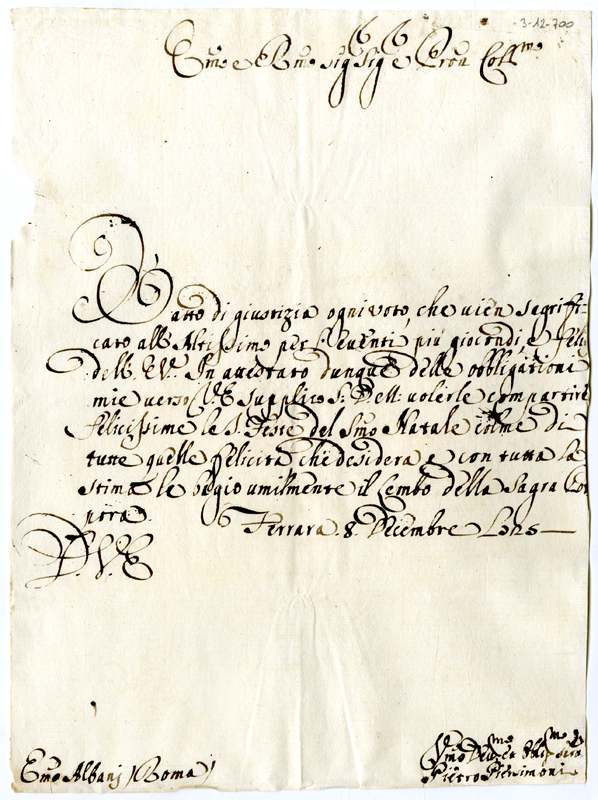 3-12-700
Emo e Rmo Sig Sig e Pron Coll mo
È atto di giustizia ogni voto, che vien sagrifi-
cato all' Altissimo per gl' eventi più giocondi, e felici
dell' E.V. In attestato dunque delle obbligationi
mie verso l' V.E. supplico S: D. M: volerle compartire
felicissime le S. Feste del Smo Natale colme di
tutte quelle felicità che desidera e con tutta la
stima le bagio umilmente il Lembo della Sagra Por
pora.
Ferrara 8. Decembre
D. V. E.
Emo Albanj (Roma)
Vmo Devmo
Pietro Piersimoni